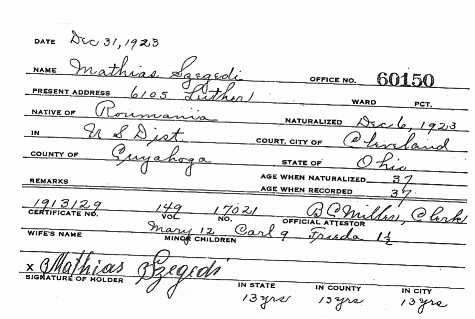 DATE Dec 31, 1923
NAME Mathias Szegedi OFFICE NO. 60150
PRESENT ADDRESS 6105 Luther WARD PCT.
NATIVE OF Roumania NATURALIZED Dec 6, 1923
IN U S Dist COURT, CITY OF Cleveland
COUNTY OF Cuyahoga STATE OF Ohio
AGE WHEN NATURALIZED 37
REMARKS AGE WHEN RECORDED 37
1913129 149 17021 B C Miller, Clerk
CERTIFICATE NO. VOL. NO. OFFICIAL ATTESTOR
Mary 12 Carl 9 Frieda 1½
WIFE'S NAME MINOR CHILDREN
x Mathias Szegedi
SIGNATURE OF HOLDER IN STATE IN COUNTY IN CITY
13 yrs 13 yrs 13 yrs